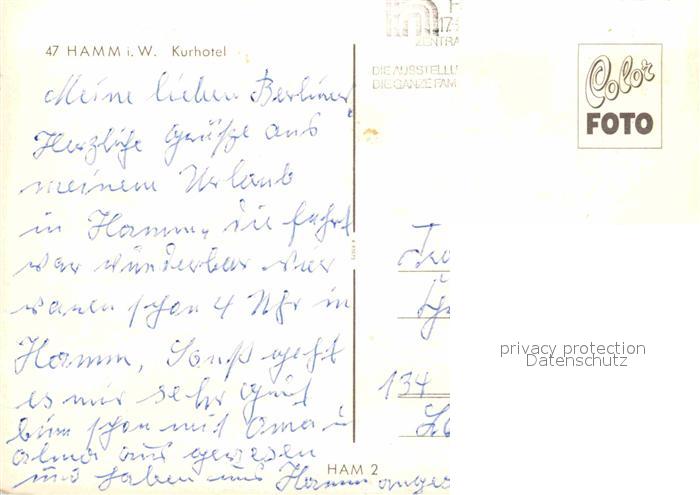 47 HAMM i. W. Kurhotel
Meine lieben Berliner
Herzliche Grüße aus
meinem Urlaub
in Hamm, die fahrt
war wunderbar wier
waren schon 4 Uhr in
Hamm, Sonst geht
es mir sehr gut
bin schon mit Oma u
alma aus gewesen
und haben uns Hamm angese
HAM 2
17-
ZENTRA
DIE AUSSTELLU
DIE GANZE FAM
Color
FOTO
134
privacy protection
Datenschutz